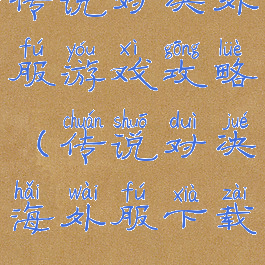 传说对决外
fú yóu xì gōng lüè
服游戏攻略
chuán shuō duì jué
（传说对决
hǎi wài fú xià zài
海外服下载